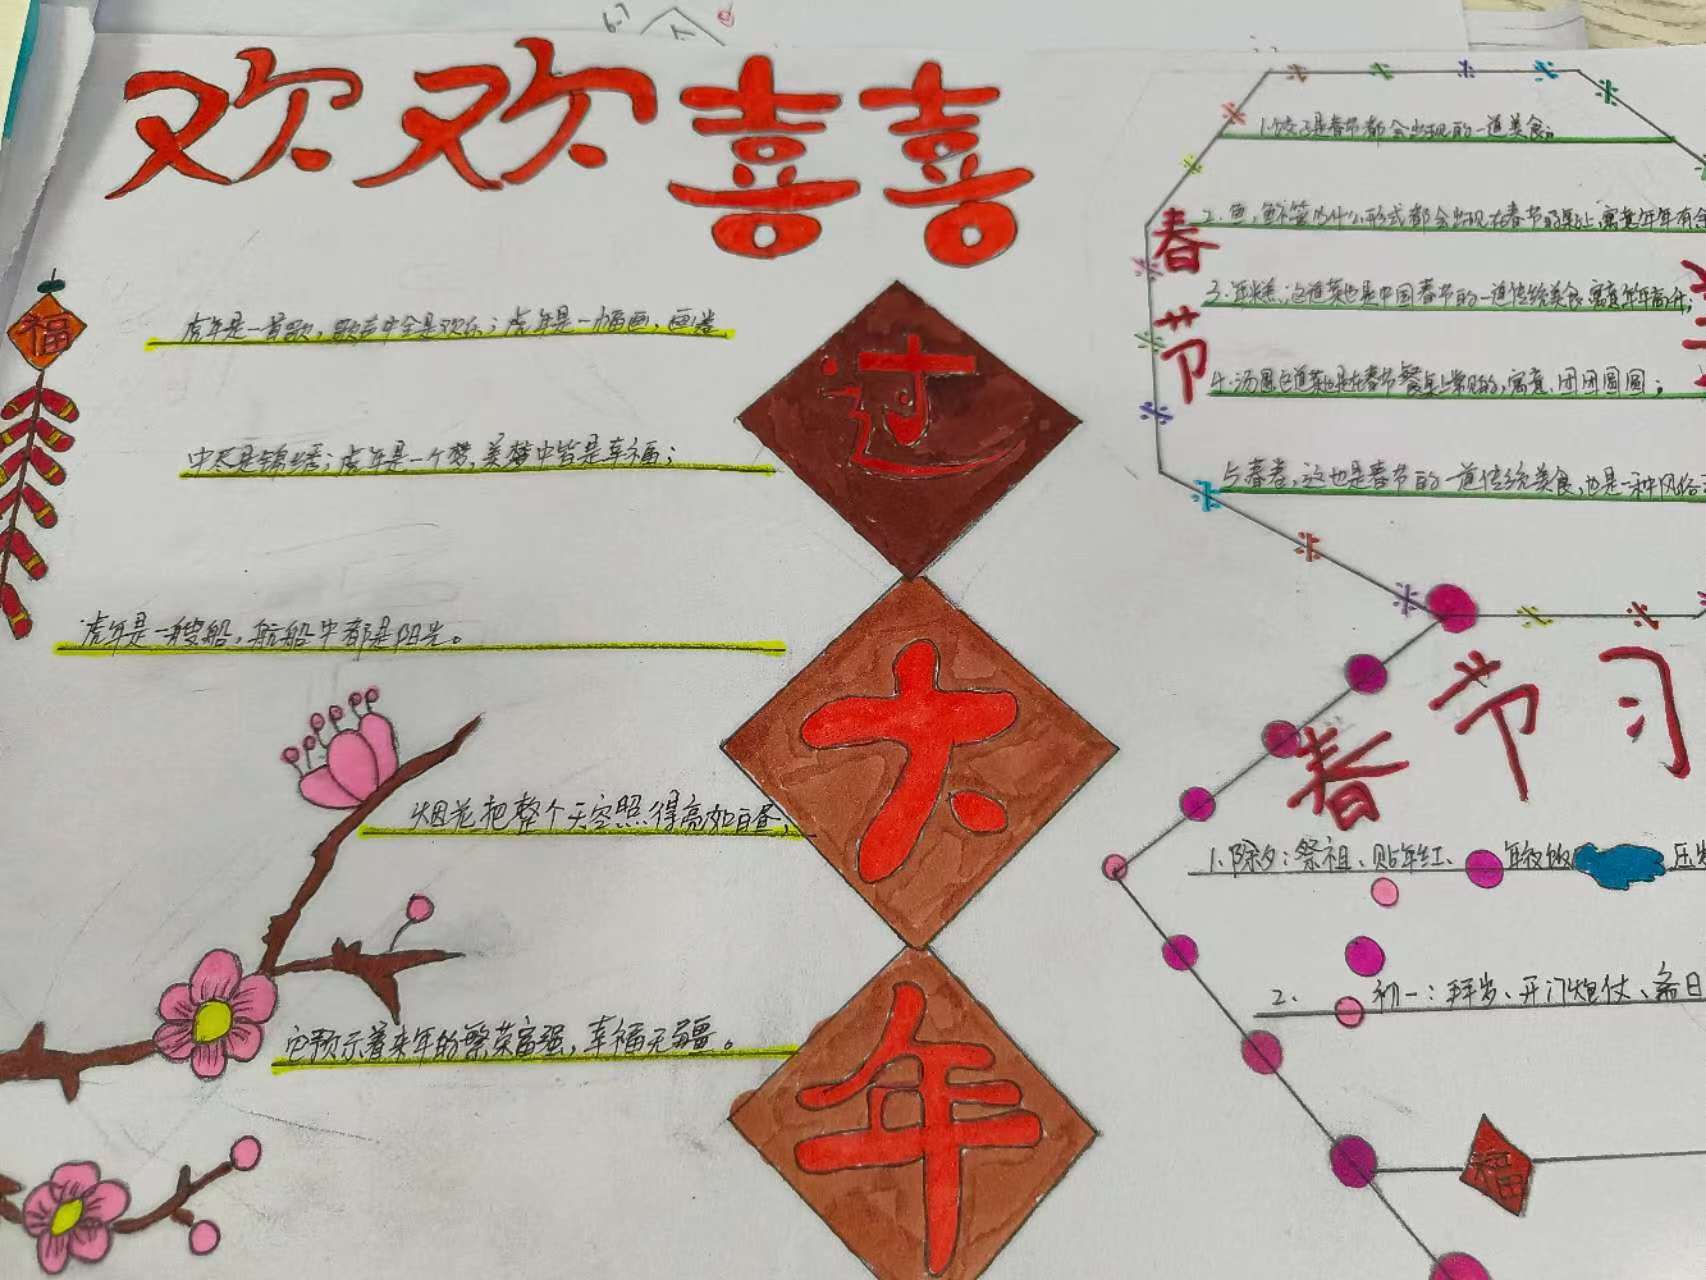 欢欢喜喜
福
虎年是一首歌，歌声中全是欢乐；虎年是一幅画，画卷
中尽是锦绣；虎年是一个梦，美梦中皆是幸福；
虎年是一艘船，航船中都是阳光。
烟花把整个天空照得亮如白昼，
它预示着来年的繁荣富强，幸福无疆。
过
大
年
春节
1.饺子是春节都会出现的一道美食。
2.鱼，
都会出现在春节的桌上，寓意年年有余
3.年糕，这道菜也是中国春节的一道传统美食，寓意年年高升；
4.汤圆这道菜也是在春节餐桌上常见的，寓意，团团圆圆；
5春卷，这也是春节的一道传统美食，也是一种风俗
春节习
1.除夕：祭祖、贴年红、年夜饭
2.初一：拜岁、开门炮仗、
福